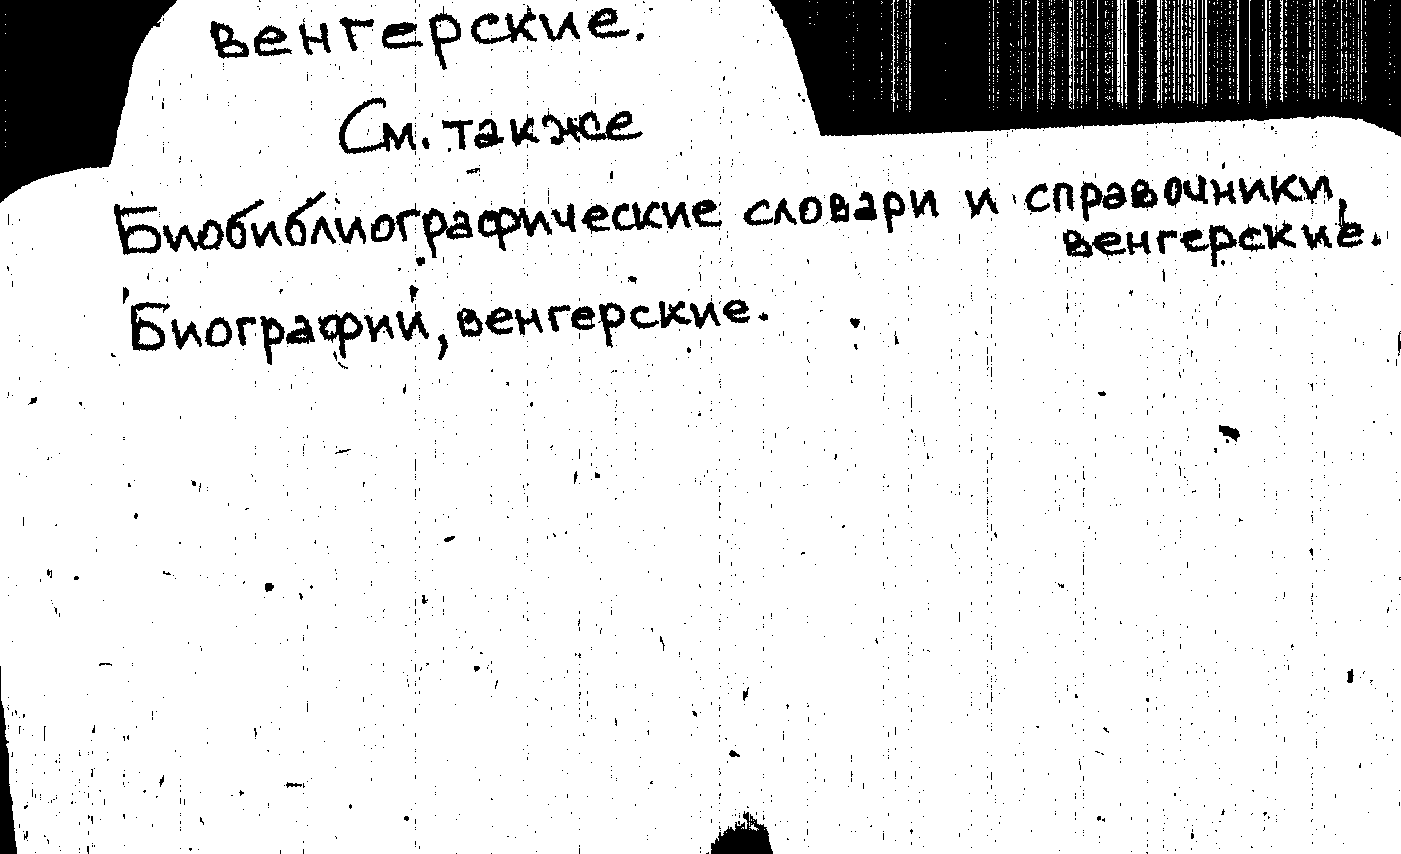 венгерские.
См. также
Биобиблиографические словари и справочники,
венгерские.
Биографии, венгерские.